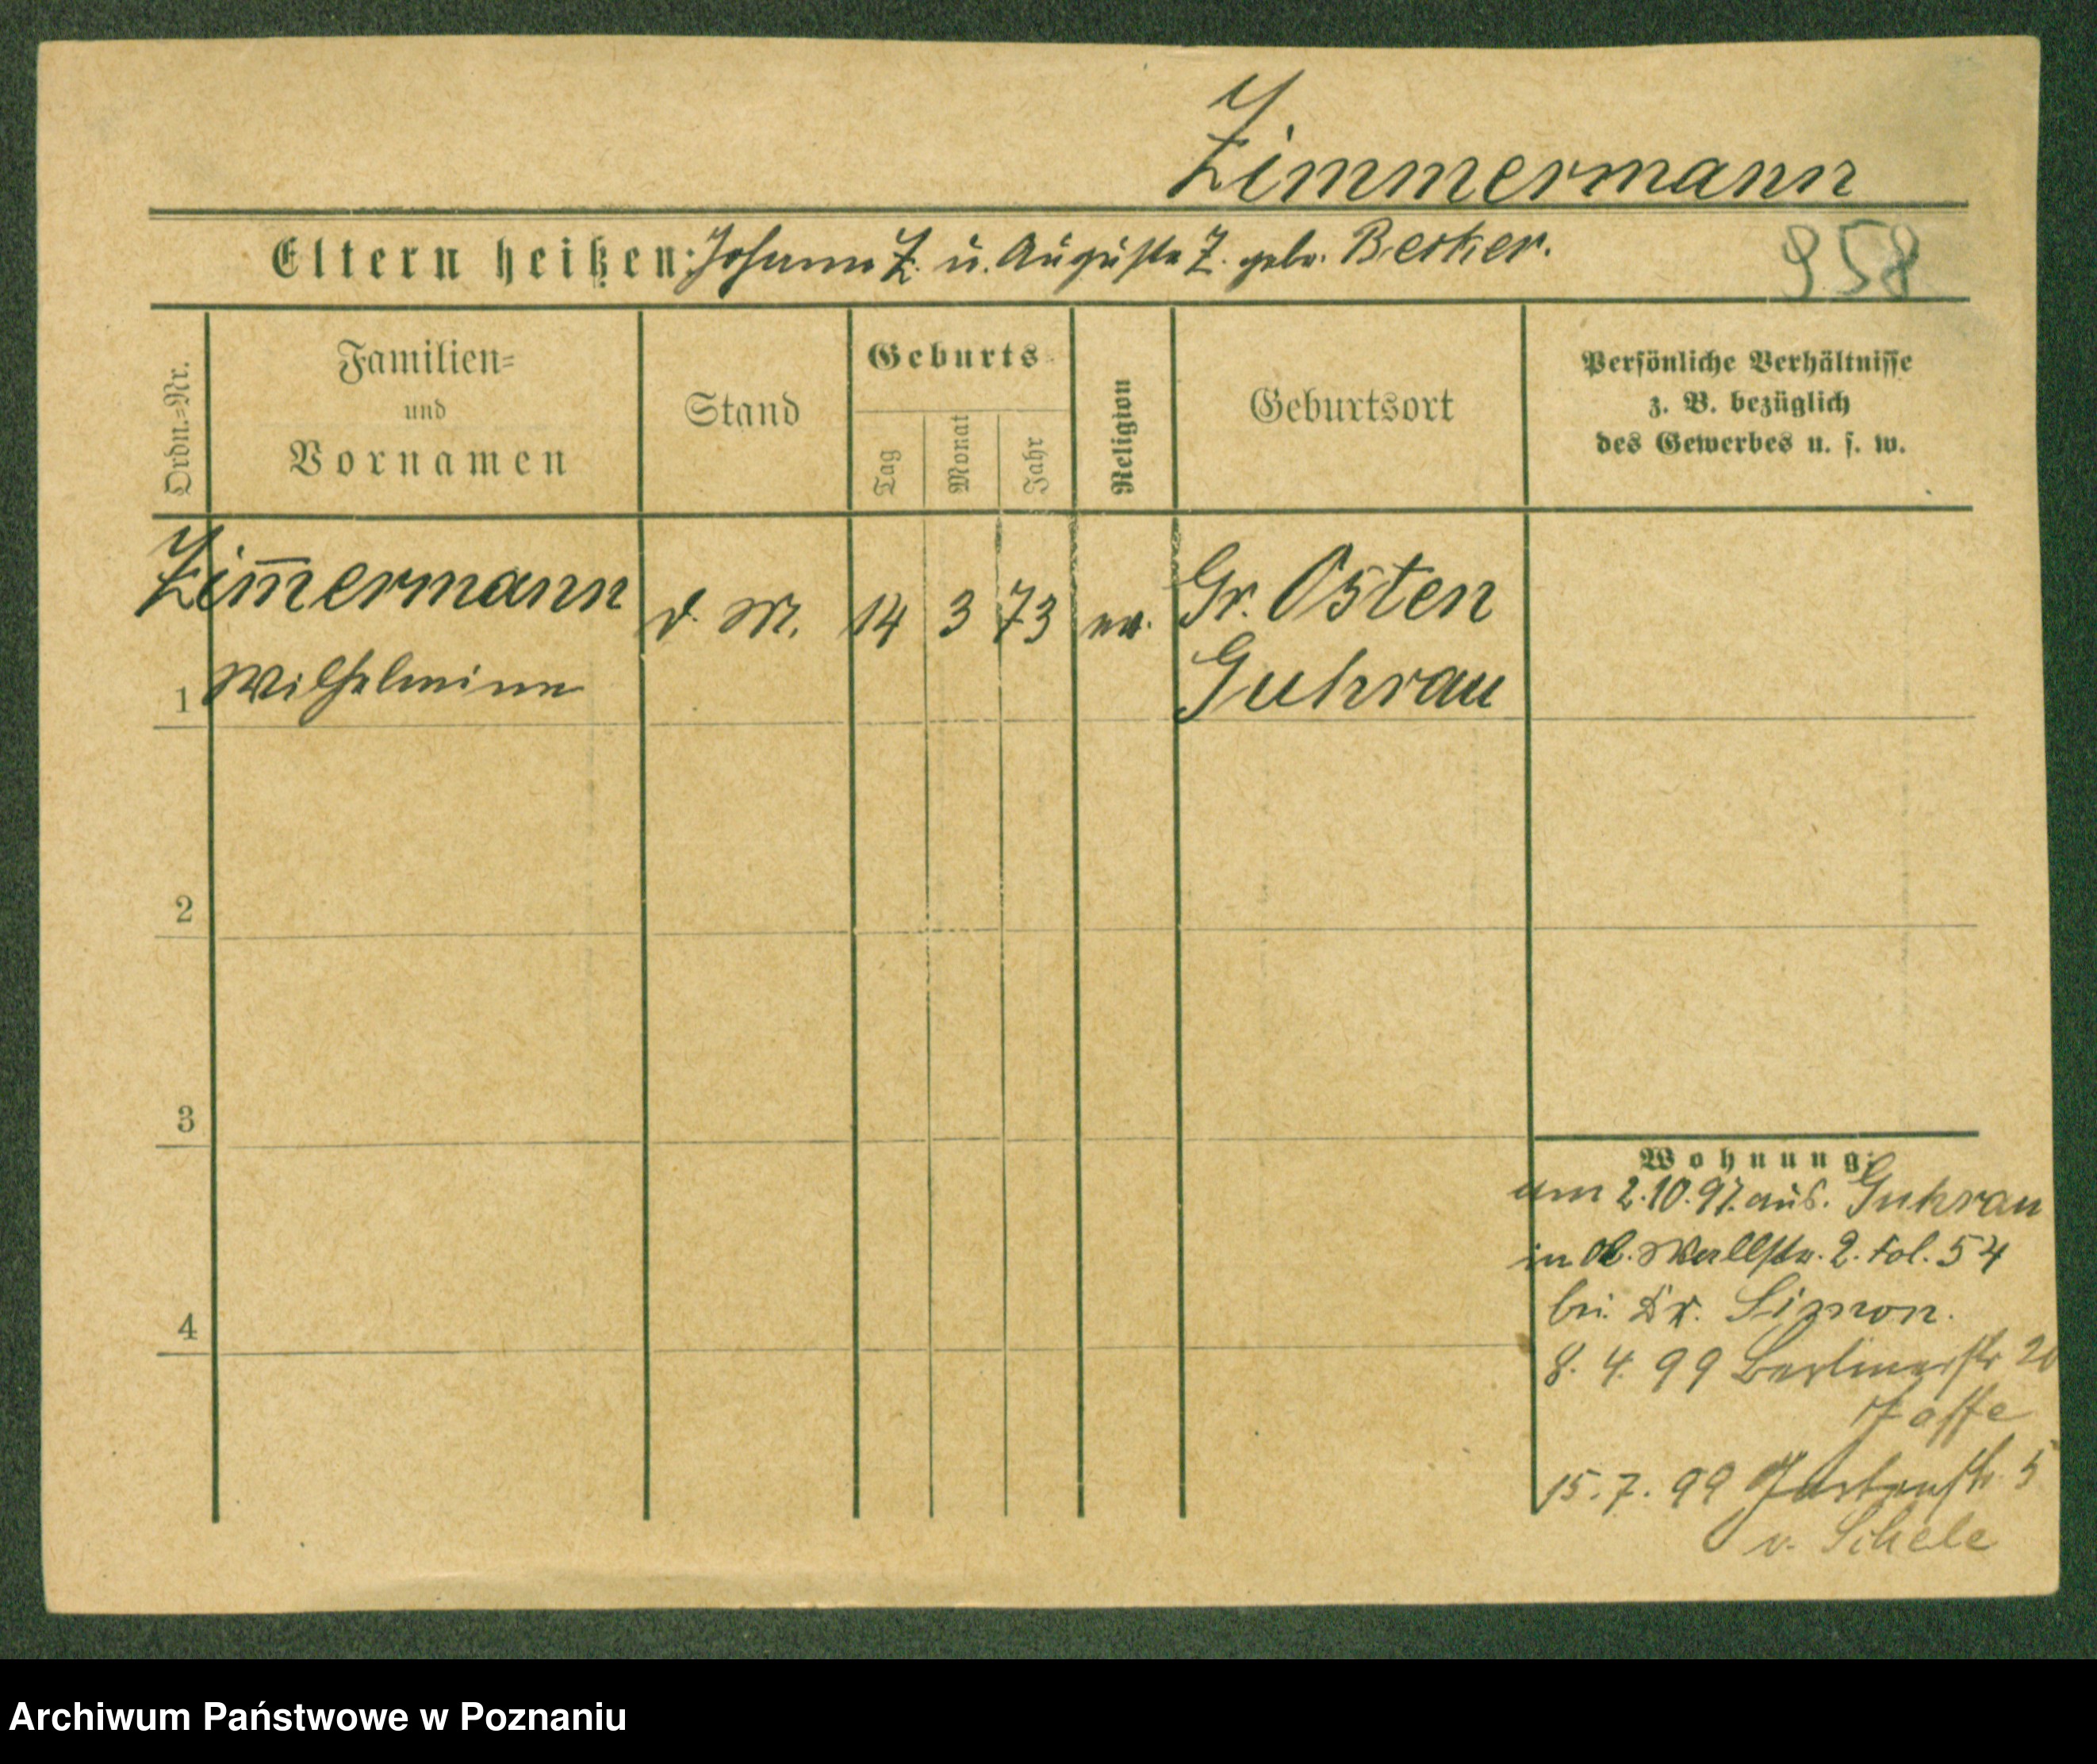 Zimmermann
Eltern heißen: Johann Z. u. Auguste Z. geb. Becker.
958
Ordn.=Nr.
Familien=
und
Vornamen
Stand
Geburts
Tag
Monat
Jahr
Religion
Geburtsort
Persönliche Verhältnisse
z. B. bezüglich
des Gewerbes u. s. w.
Zim̅ermann
d. M. 14 3 73 ev. Gr. Osten
1 Wilhelmine
Guhrau
2
3
4
Wohnung:
am 2.10.97. aus. Guhrau
in Ob. Wallstr. 2. Fol. 54
bei Dr. Simon.
8. 4. 99 Berlinerstr 20
Jaffe
15. 7. 99 Gartenstr. 5
v. Schele
Archiwum Państwowe w Poznaniu